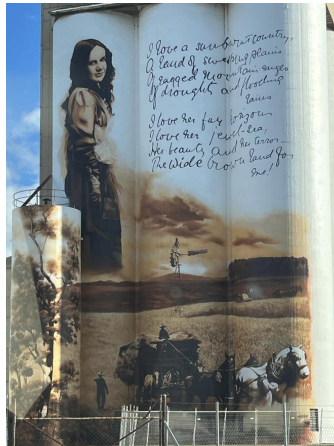 I love a sunburnt country,
A land of sweeping plains
Of ragged mountain ranges
Of drought and flooding
rains
I love her far horizons
I love her jewel-sea,
Her beauty and her terror -
The Wide brown land for
me.